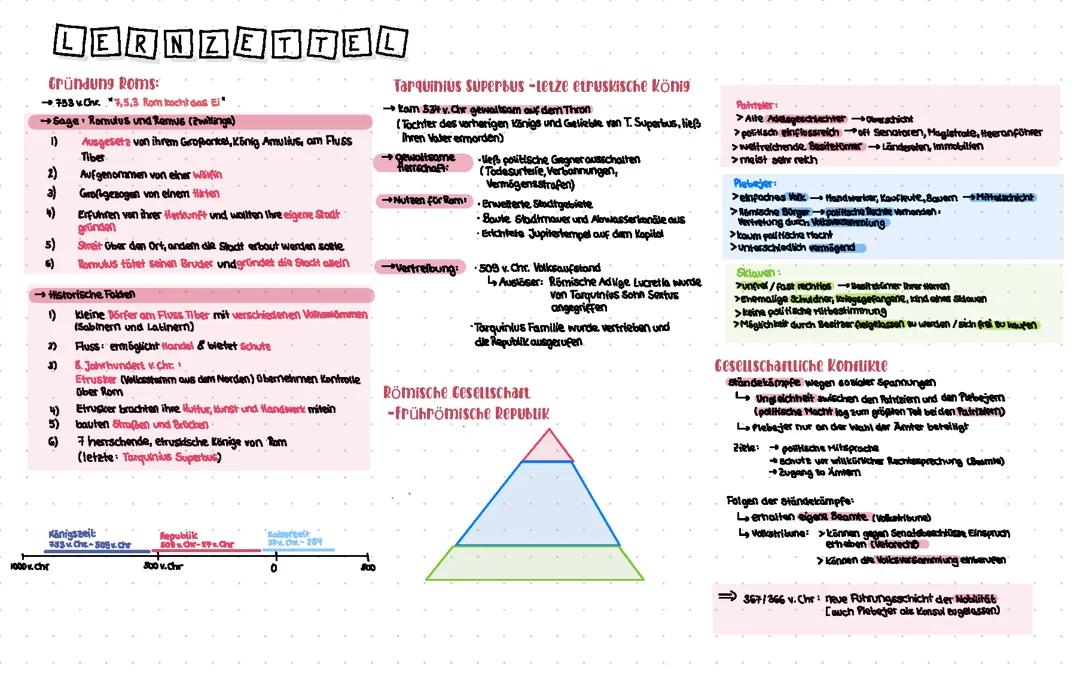 LERNZETTEL
Gründung Roms:
→ 753 v.Chr. "7,5,3 Rom kocht das Ei"
→ Sage: Romulus und Remus (Zwillinge)
1) Ausgesetz von ihrem Großonkel, König Amulius, am Fluss
Tiber
2) Aufgenommen von einer Wölfin
3) Großgezogen von einem Hirten
4) Erfuhren von ihrer Herkunft und wollten ihre eigene Stadt
gründen
5) Streit über den Ort, andem die Stadt erbaut werden sollte
6) Romulus tötet seinen Bruder und gründet die Stadt allein
→ Historische Fakten
1) kleine Dörfer am Fluss Tiber mit verschiedenen Volksstämmen
(Sabinern und Latinern)
2) Fluss: ermöglicht Handel & bietet Schutz
3) 8. Jahrhundert v. Chr. :
Etrusker (Volksstamm aus dem Norden) übernehmen Kontrolle
über Rom
4) Etrusker brachten ihre Kultur, Kunst und Handwerk mitein
5) bauten Straßen und Brücken
6) 7 herrschende, etruskische Könige von Rom
(letzte: Tarquinius Superbus)
Königszeit
753 v.Chr. - 509 v.Chr
Republik
509 v.Chr - 27 v.Chr
Kaiserzeit
27 v.Chr. - 284
1000 v. Chr
500 v.Chr
0
500
Tarquinius Superbus - Letze etruskische König
→ Kam 534 v. Chr gewaltsam auf dem Thron
(Tochter des vorherigen Königs und Geliebte von T. Superbus, ließ
ihren Vater ermorden)
→ gewaltsame
Herrschaft:
· ließ politische Gegner ausschalten
(Todesurteile, Verbannungen,
Vermögensstrafen)
→ Nutzen für Rom:
· Erweiterte Stadtgebiete
· Baute Stadtmauer und Abwasserkanäle aus
· Errichtete Jupitertempel auf dem Kapitol
→ Vertreibung:
· 509 v. Chr. Volksaufstand
↳ Auslöser: Römische Adlige Lucretia wurde
von Tarquinius Sohn Sextus
angegriffen
· Tarquinius Familie wurde vertrieben und
die Republik ausgerufen
Römische Gesellschaft
- Frührömische Republik
Patrizier:
> Alte Adelsgeschlechter → Oberschicht
> politisch einflussreich → oft Senatoren, Magistrate, Heeranführer
> weitreichende Besitztümer → Ländereien, Immobilien
> meist sehr reich
Plebejer:
> einfaches Volk → Handwerker, Kaufleute, Bauern → Mittelschicht
> Römische Bürger → politische Rechte vorhanden:
Vertretung durch Volksversammlung
> kaum politische Macht
> unterschiedlich vermögend
Sklaven:
> unfrei / fast rechtlos → Besitztümer ihrer Herren
> Ehemalige Schuldner, Kriegsgefangene, Kind eines Sklaven
> keine politische Mitbestimmung
> Möglichkeit durch Besitzer freigelassen zu werden / sich frei zu kaufen
Gesellschaftliche Konflikte
Ständekämpfe wegen sozialer Spannungen
↳ Ungleichheit zwischen den Patriziern und den Plebejern
(politische Macht lag zum größten Teil bei den Patriziern)
↳ Plebejer nur an der Wahl der Ämter beteiligt
Ziele: → politische Mitsprache
→ Schutz vor willkürlicher Rechtssprechung (Beamte)
→ Zugang zu Ämtern
Folgen der Ständekämpfe:
↳ erhalten eigene Beamte (Volkstribune)
↳ Volkstribune: > können gegen Senatsbeschlüsse Einspruch
erheben (Vetorecht)
> Können die Volksversammlung einberufen
⇒ 367/366 v. Chr: neue Führungsschicht der Nobilität
[auch Plebejer als Konsul zugelassen)